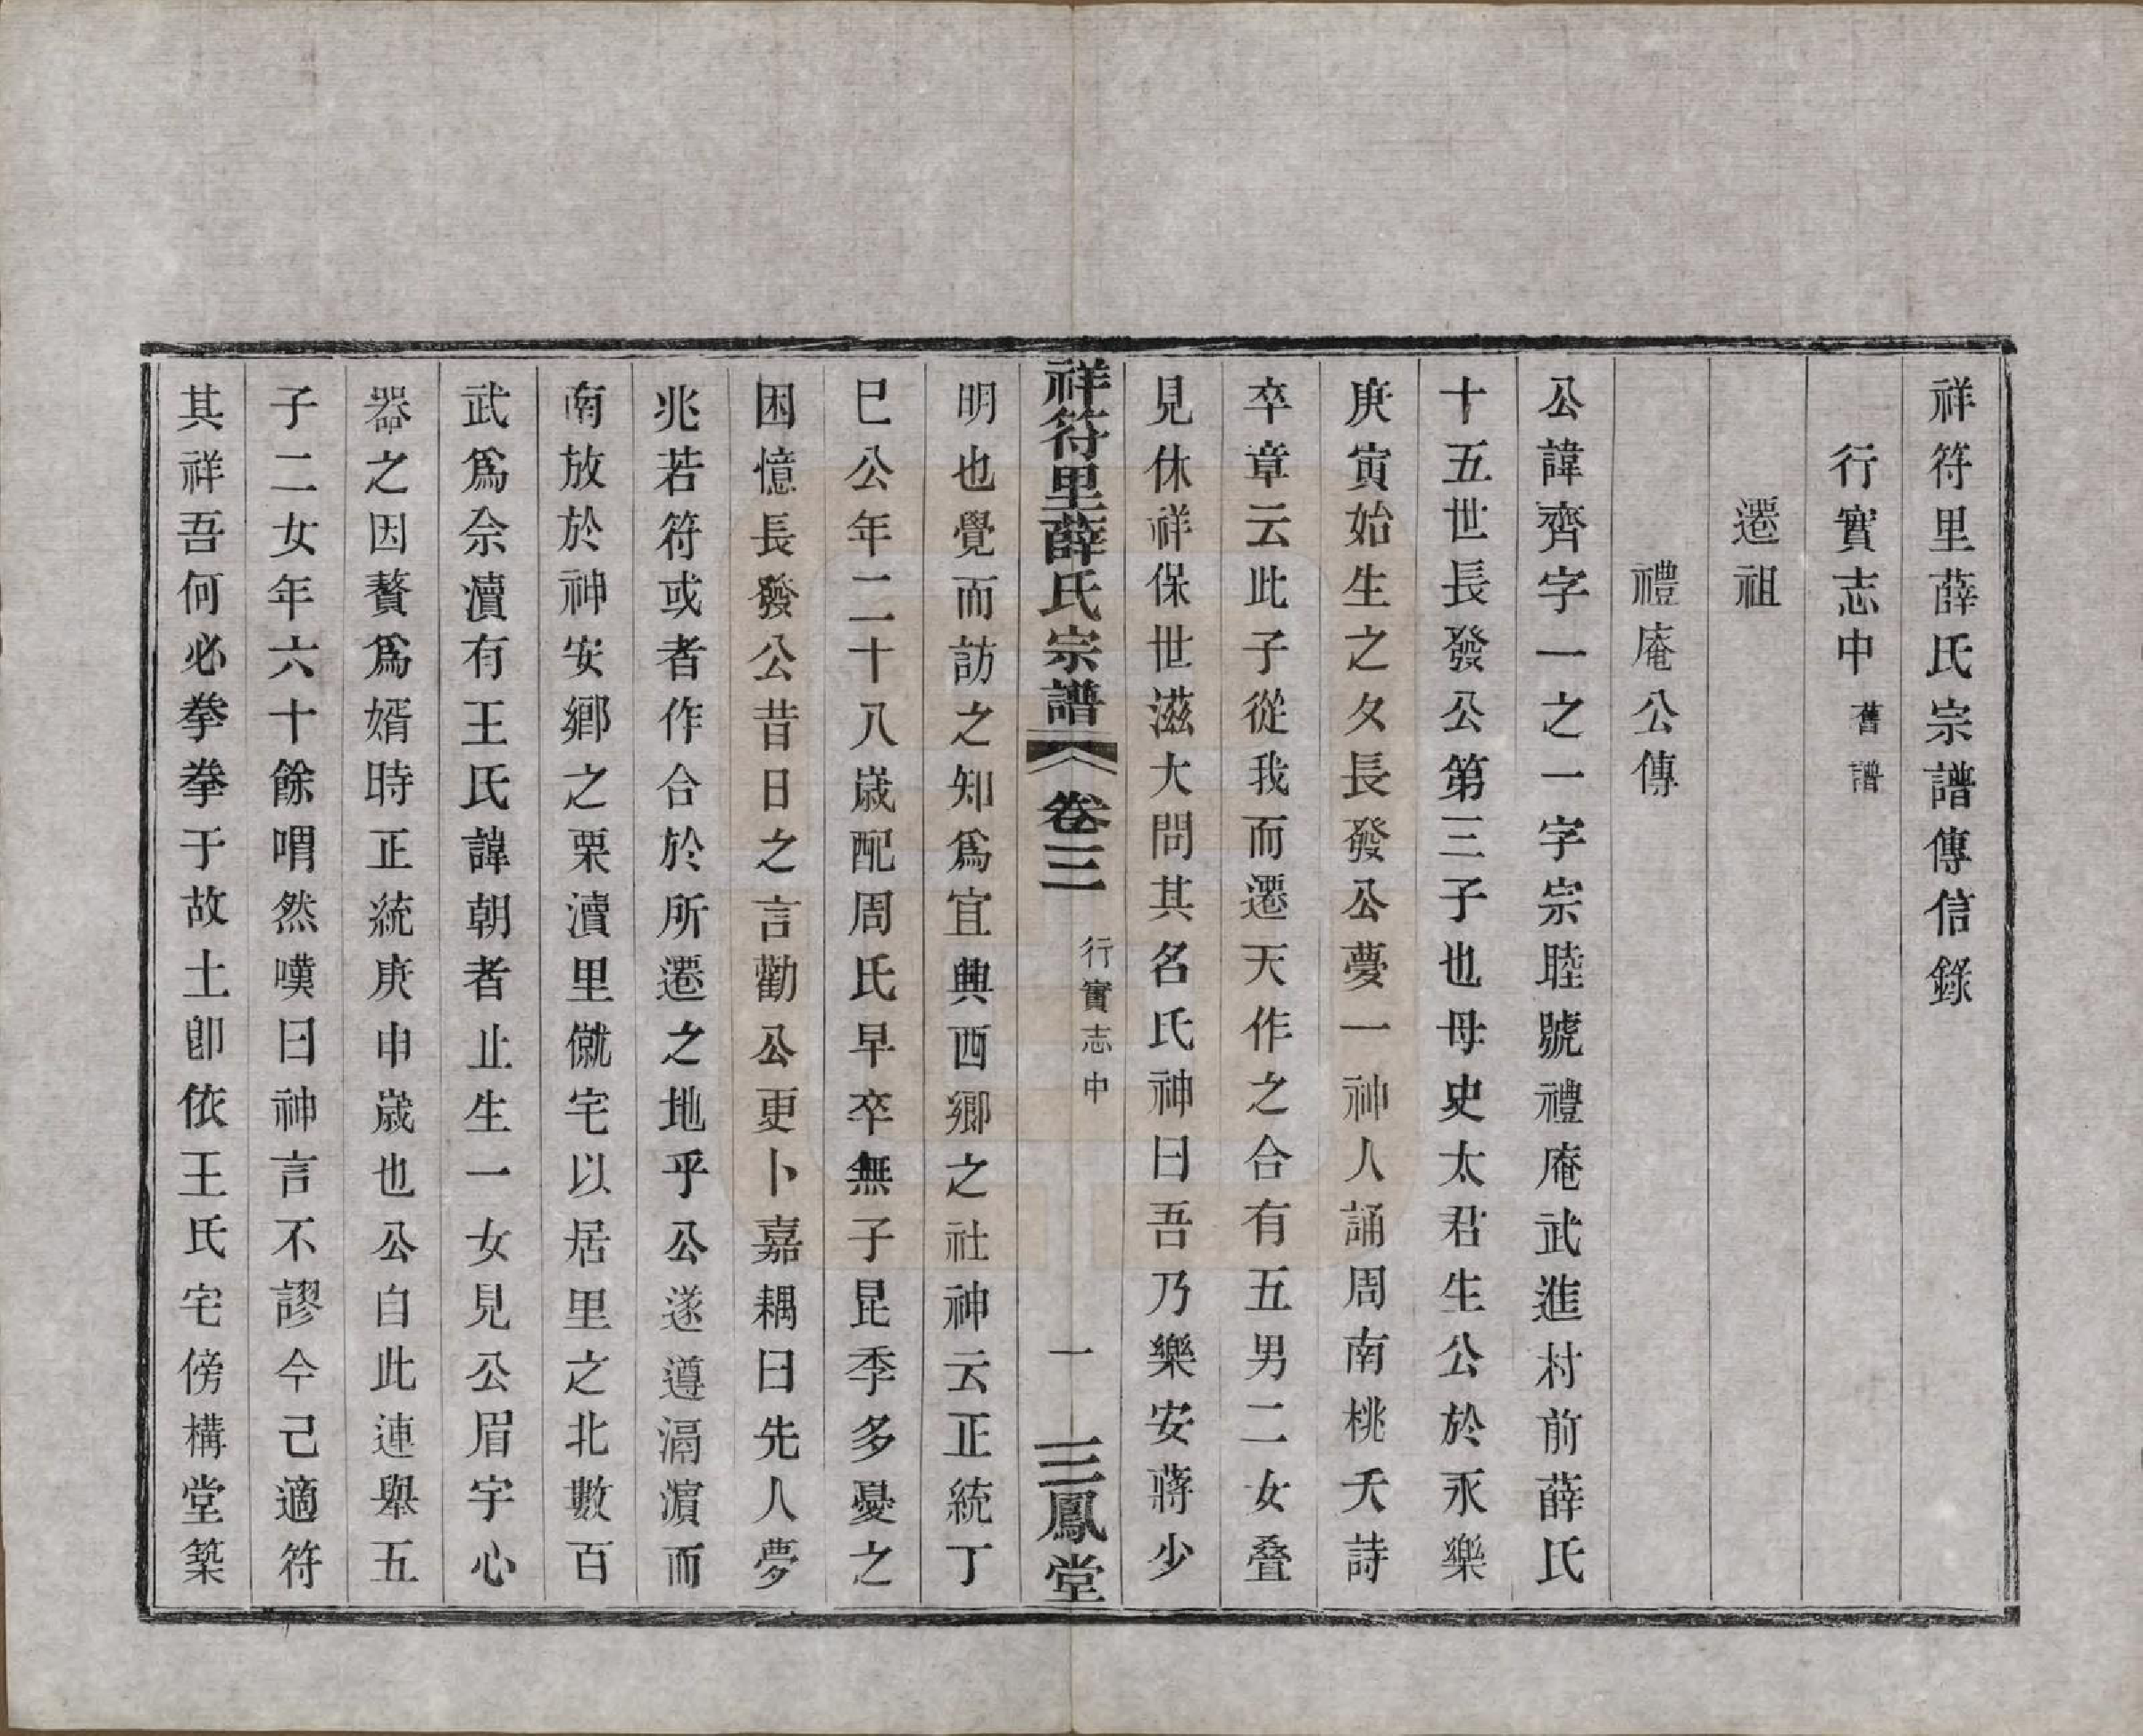 祥符里薛氏宗譜傳信錄
行實志中 舊譜
遷祖
禮庵公傳
公諱齊字一之一字宗睦號禮庵武進村前薛氏
十五世長發公第三子也母史太君生公於永樂
庚寅始生之夕長發公夢一神人誦周南桃夭詩
卒章云此子從我而遷天作之合有五男二女叠
見休祥保世滋大問其名氏神曰吾乃樂安蔣少
祥符里薛氏宗譜 卷三 行實志中 一 三鳳堂
明也覺而訪之知爲宜興西鄉之社神云正統丁
巳公年二十八歲配周氏早卒無子昆季多憂之
因憶長發公昔日之言勸公更卜嘉耦曰先人夢
兆若符或者作合於所遷之地乎公遂遵滆濵而
南放於神安鄉之栗瀆里僦宅以居里之北數百
武爲佘瀆有王氏諱朝者止生一女見公眉宇心
器之因贅爲婿時正統庚申歲也公自此連舉五
子二女年六十餘喟然嘆曰神言不謬今已適符
其祥吾何必拳拳于故土卽依王氏宅傍構堂築